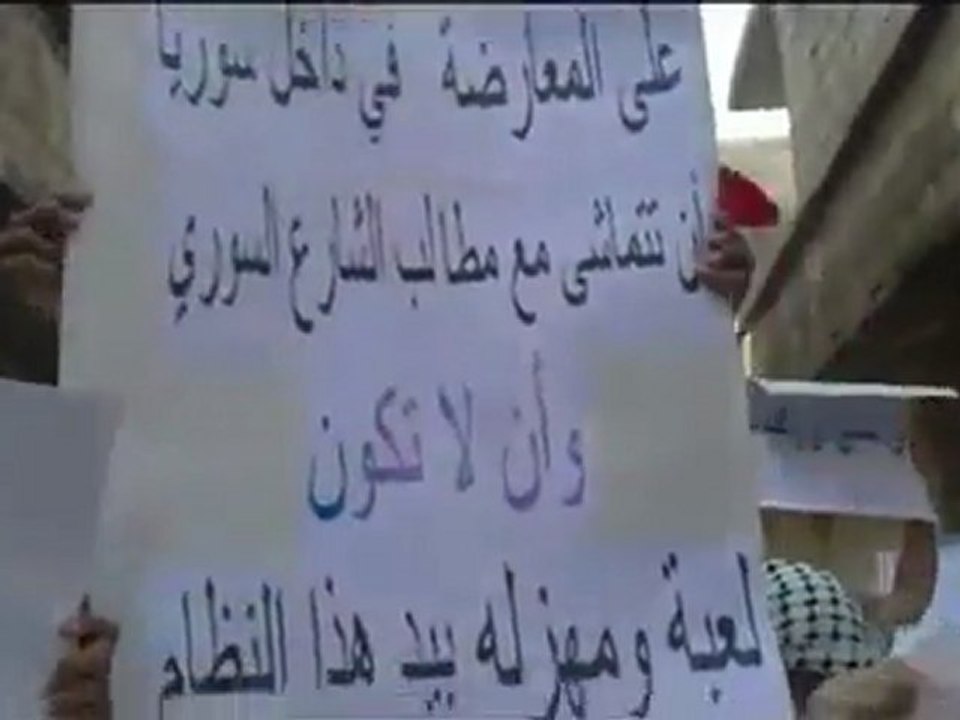 على المعارضة في داخل سوريا
أن تتماشى مع مطالب الشارع السوري
وأن لا تكون
لعبة ومهزله بيد هذا النظام